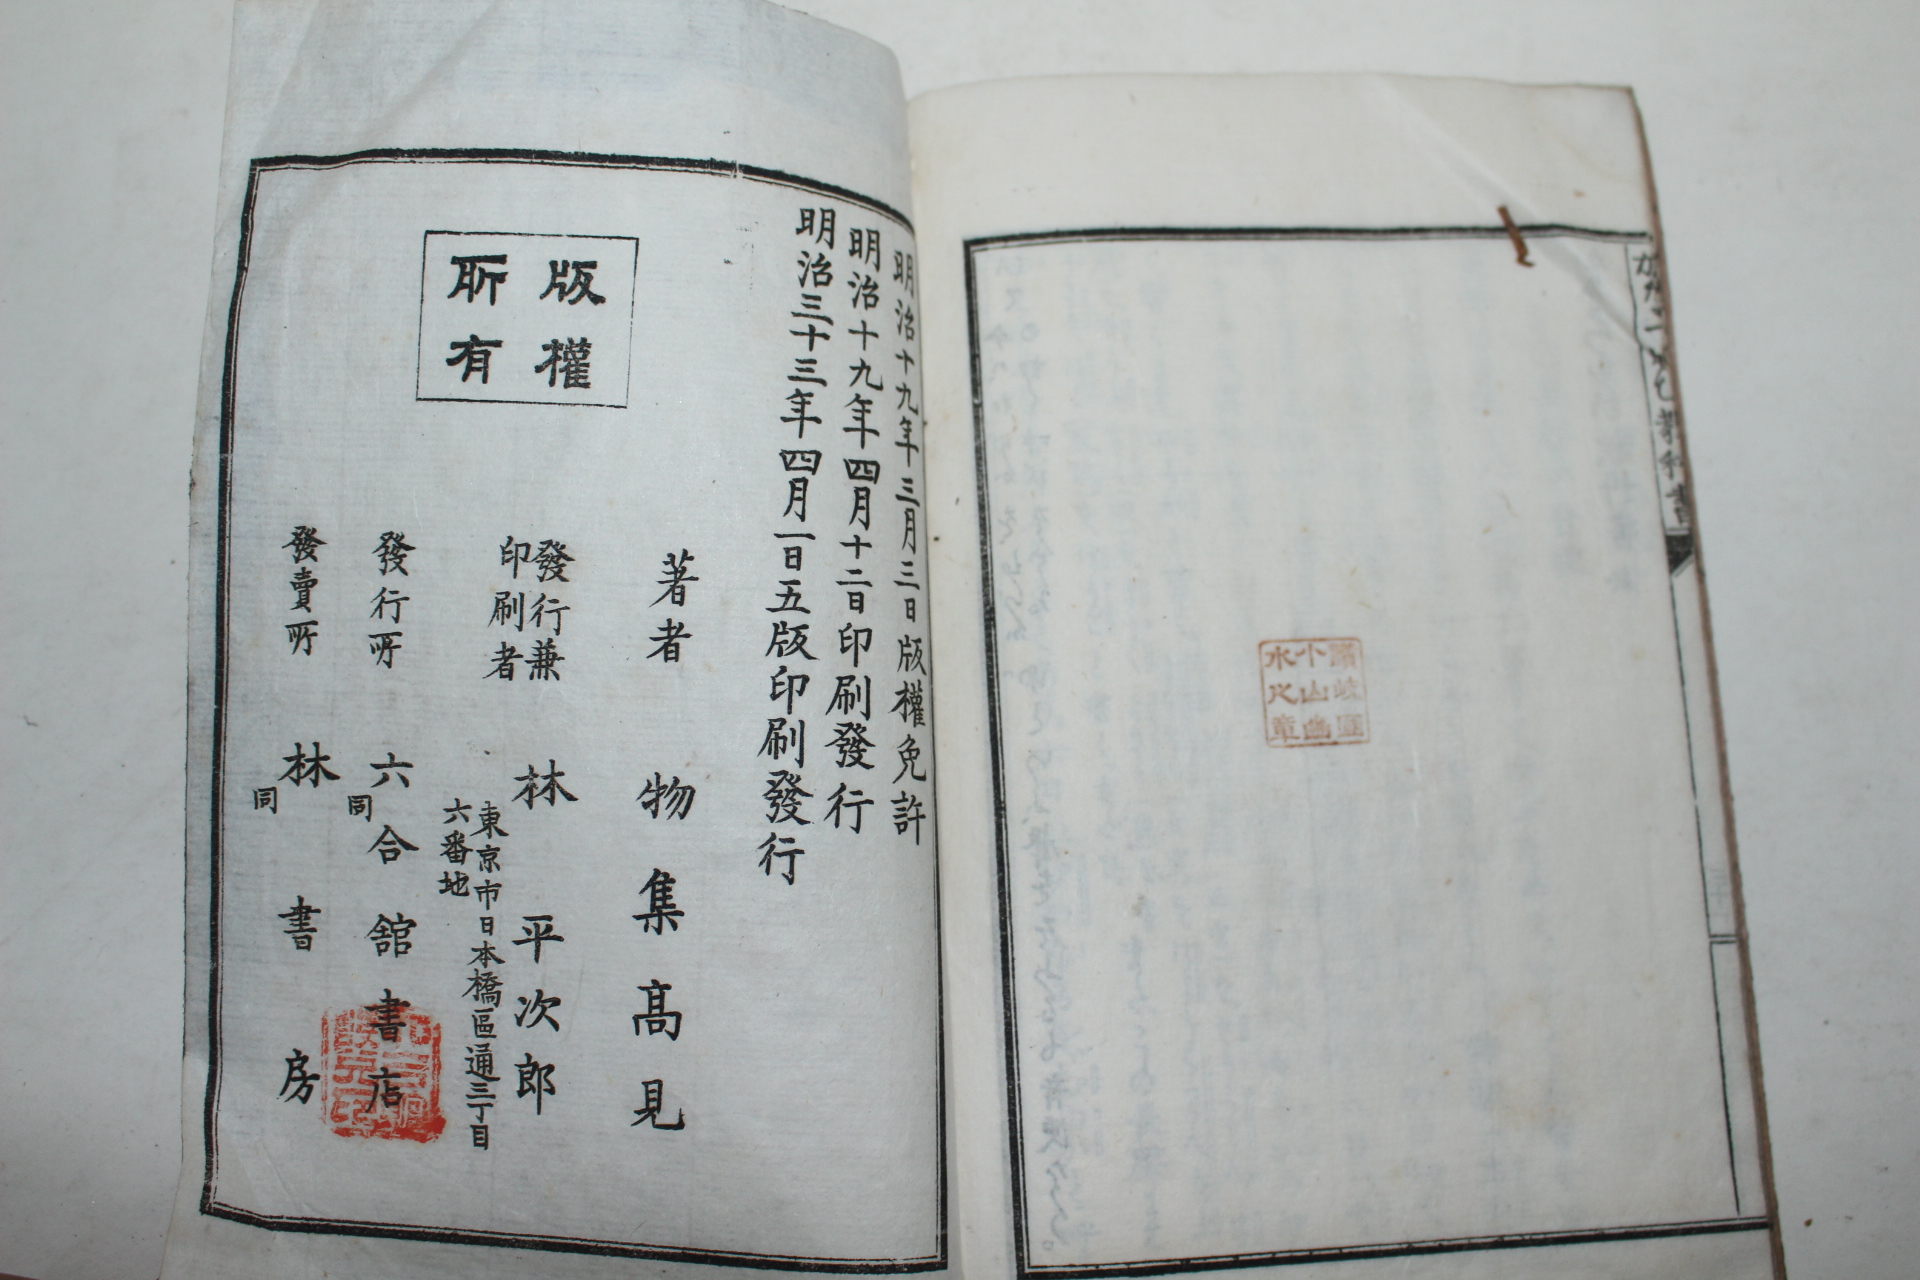 教科書
讃岐國
小山幽
水之章
明治十九年三月三日版權免許
明治十九年四月十二日印刷發行
明治三十三年四月一日五版印刷發行
版權
所有
著者 物集高見
發行兼
印刷者 林平次郎
東京市日本橋區通三丁目
六番地
發行所 六合舘書店
同
發賣所 林書房
同